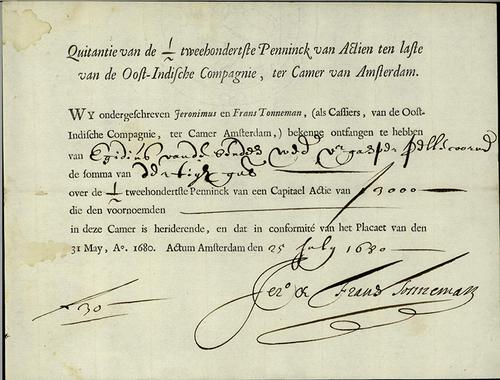 Quitantie van de 1/2 tweehondertste Penninck van Actien ten laste
van de Oost-Indische Compagnie, ter Camer van Amsterdam.
WY ondergeschreven Jeronimus en Frans Tonneman, (als Cassiers, van de Oost-
Indische Compagnie, ter Camer Amsterdam,) bekenne ontfangen te hebben
van Egidius vande
de somma van dertigh
over de 1/2 tweehondertste Penninck van een Capitael Actie van ƒ 3000
die den voornoemden
in deze Camer is heriderende, en dat in conformité van het Placaet van den
31 May, Ao. 1680. Actum Amsterdam den 25 July 1680
ƒ 30
Jero & Frans Tonneman